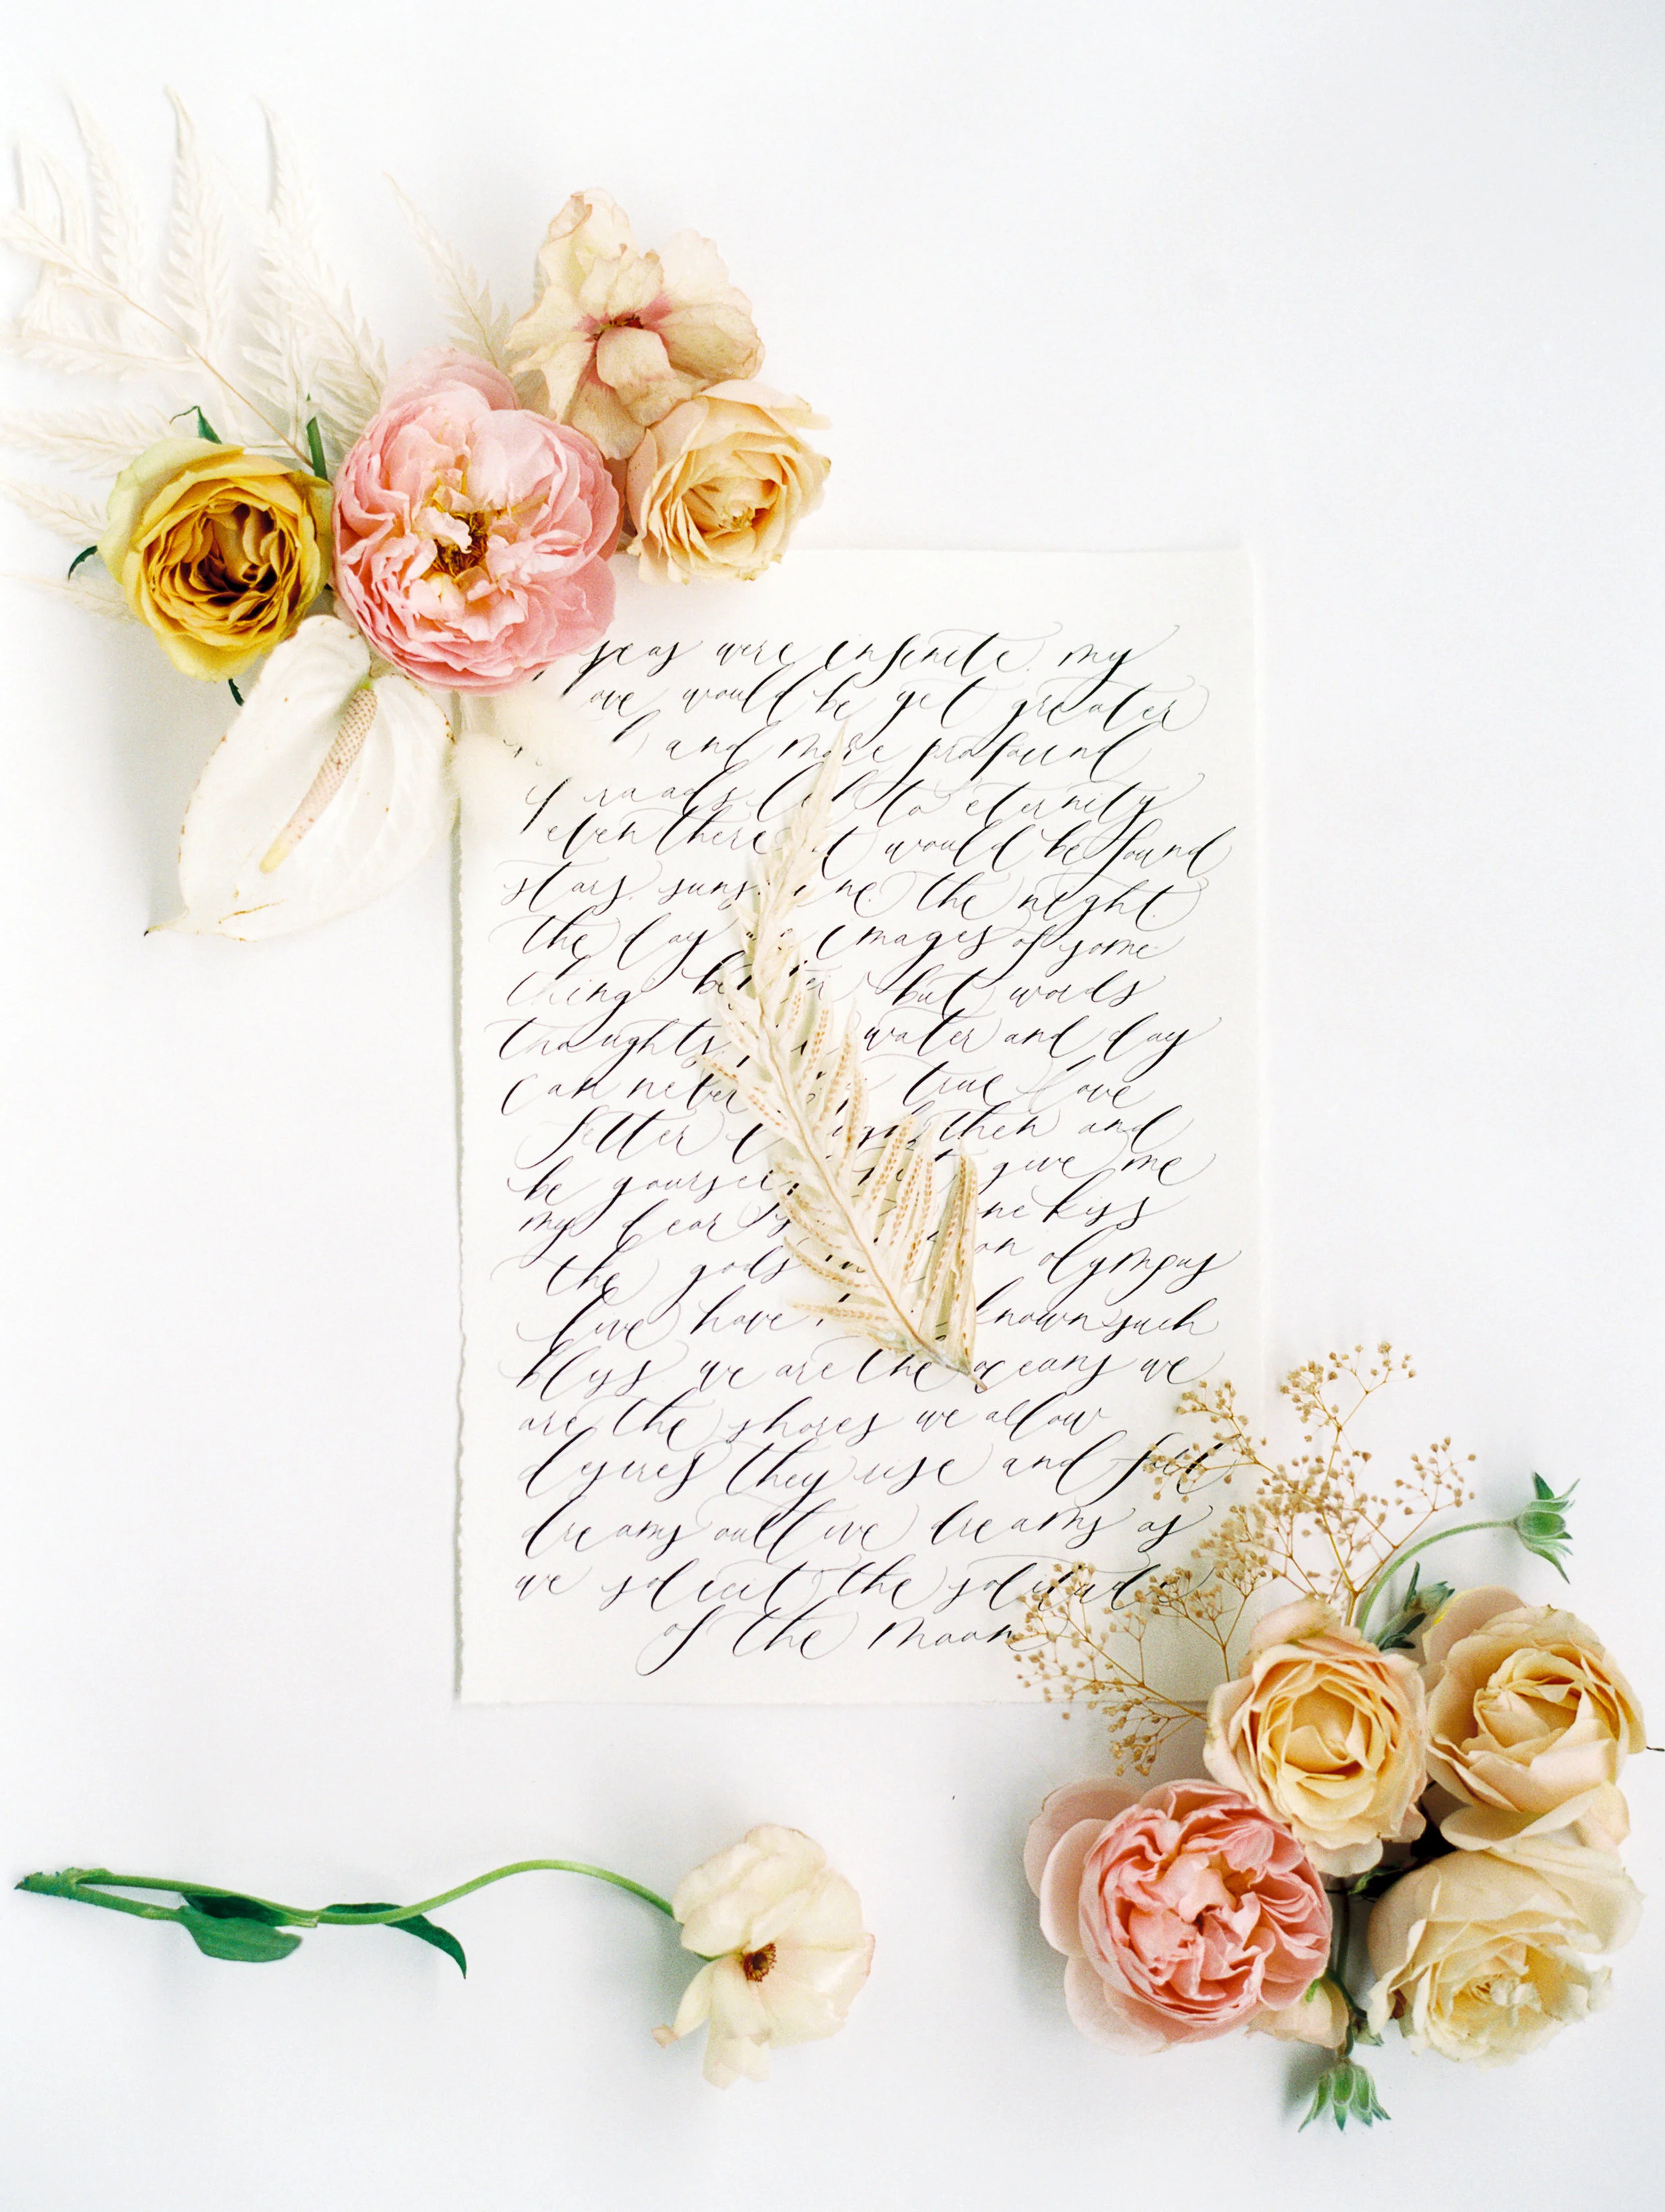 seas were infinite my
would be yet greater
and more profound
if roads led to eternity
even there it would be found
stars suns the night
the day images of some
thing better but words
thoughts water and day
can never true love
letter then and
be yourself give me
my dear one kiss
the gods on olympus
live have known such
blyss we are the oceans we
are the shores we allow
desires they rise and fall
dreams outlive dreams as
we solicit the solitude
of the moon